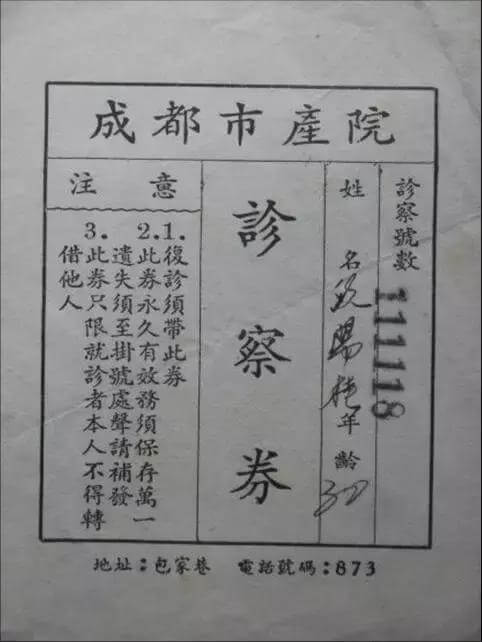 成都市產院
診察號數 111118
姓名 欧陽 年齡 30
診察券
注意
1.復診須帶此券
2.此券永久有效務須保存萬一
遺失須至掛號處聲請補發
3.此券只限就診者本人不得轉
借他人
地址:包家巷 電話號碼:873